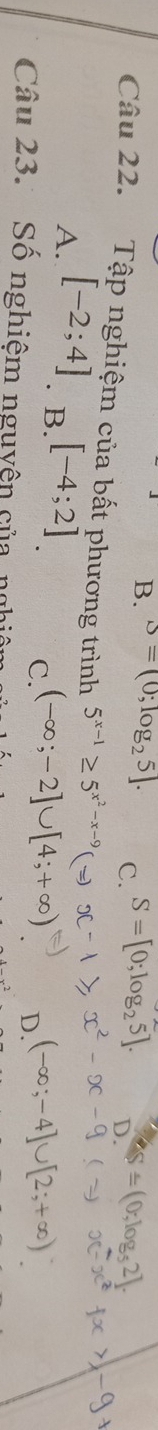 B. S = (0; log₂ 5]. C. S = [0; log₂ 5]. D. S = (0; log₅ 2].
Câu 22. Tập nghiệm của bất phương trình 5^{x-1} ≥ 5^{x²-x-9} (=) x - 1 ≥ x² - x - 9 (=) x - x² + x ≥ -9 +
A. [-2; 4]. B. [-4; 2]. C. (-∞; -2] ∪ [4; +∞). (=) D. (-∞; -4] ∪ [2; +∞).
Câu 23. Số nghiệm nguyên của